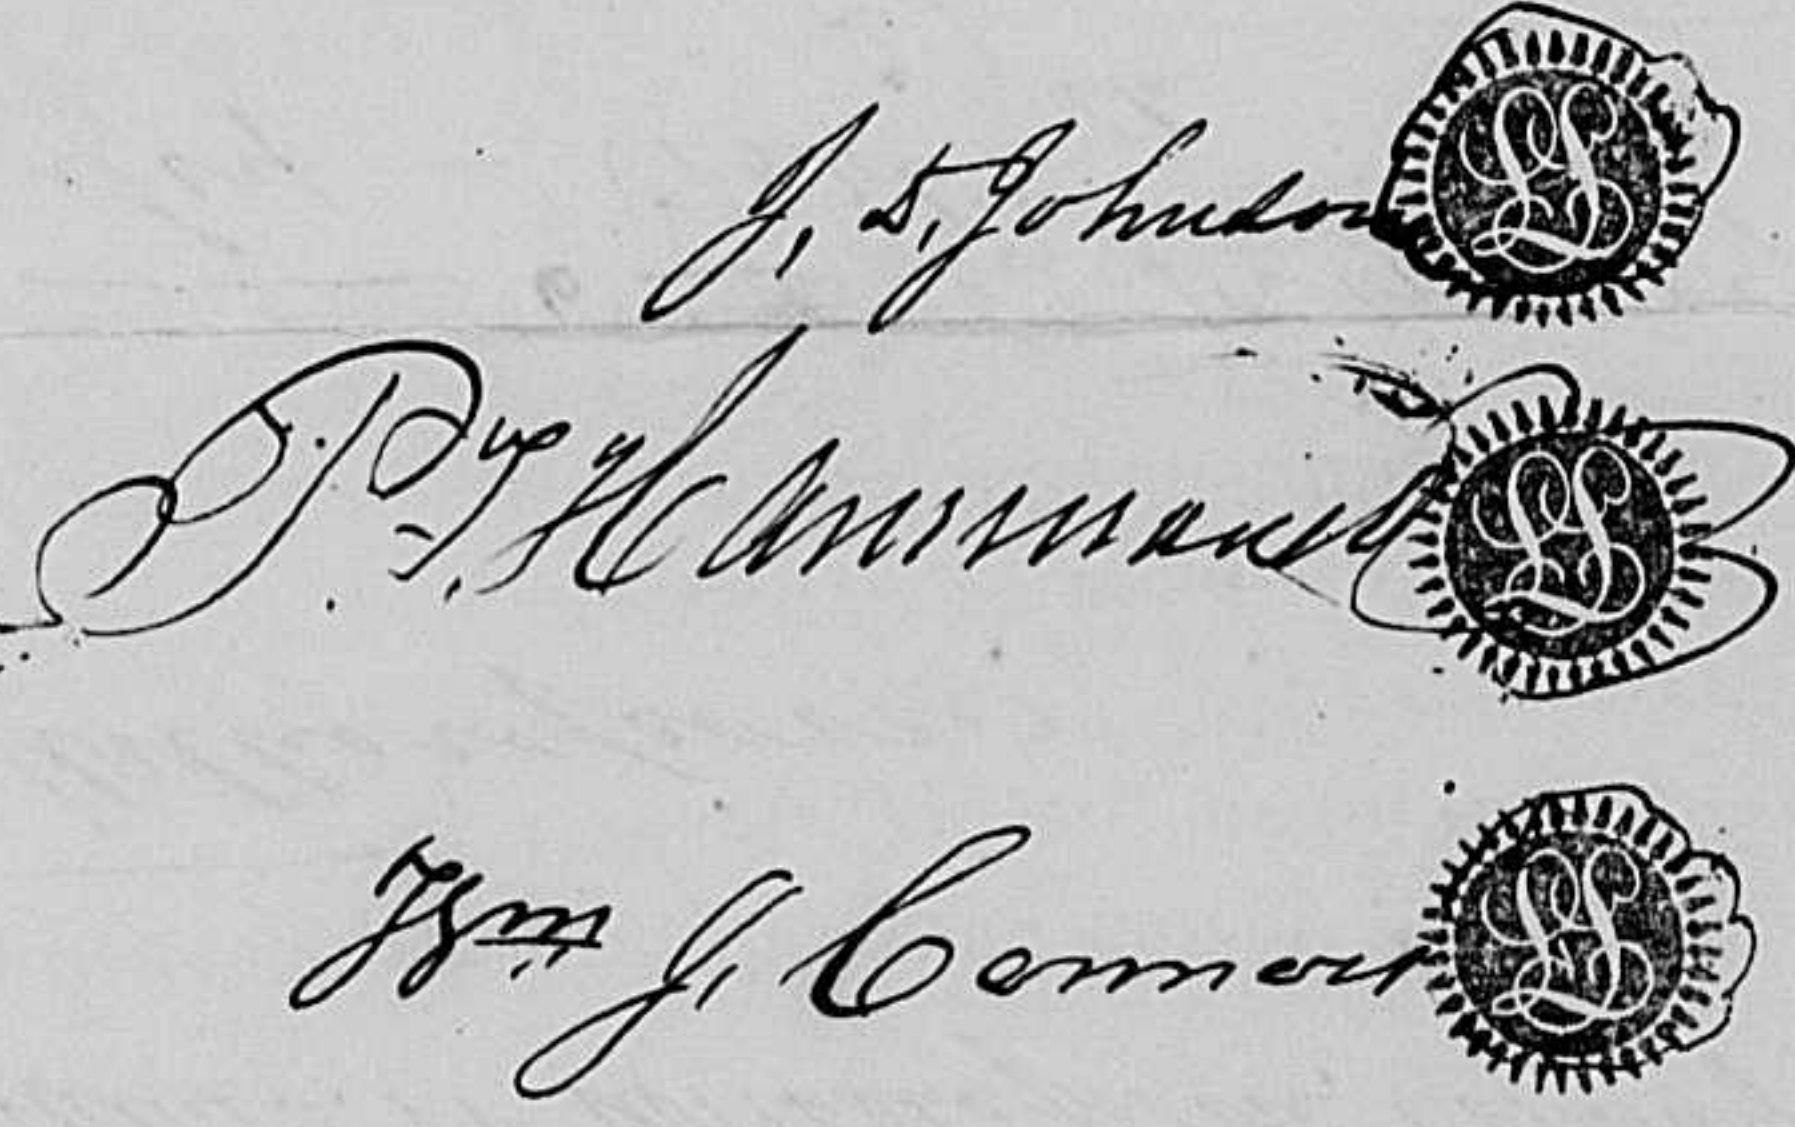 J. D. Johnson LS
P. Hammond LS
Wm J. Connor LS